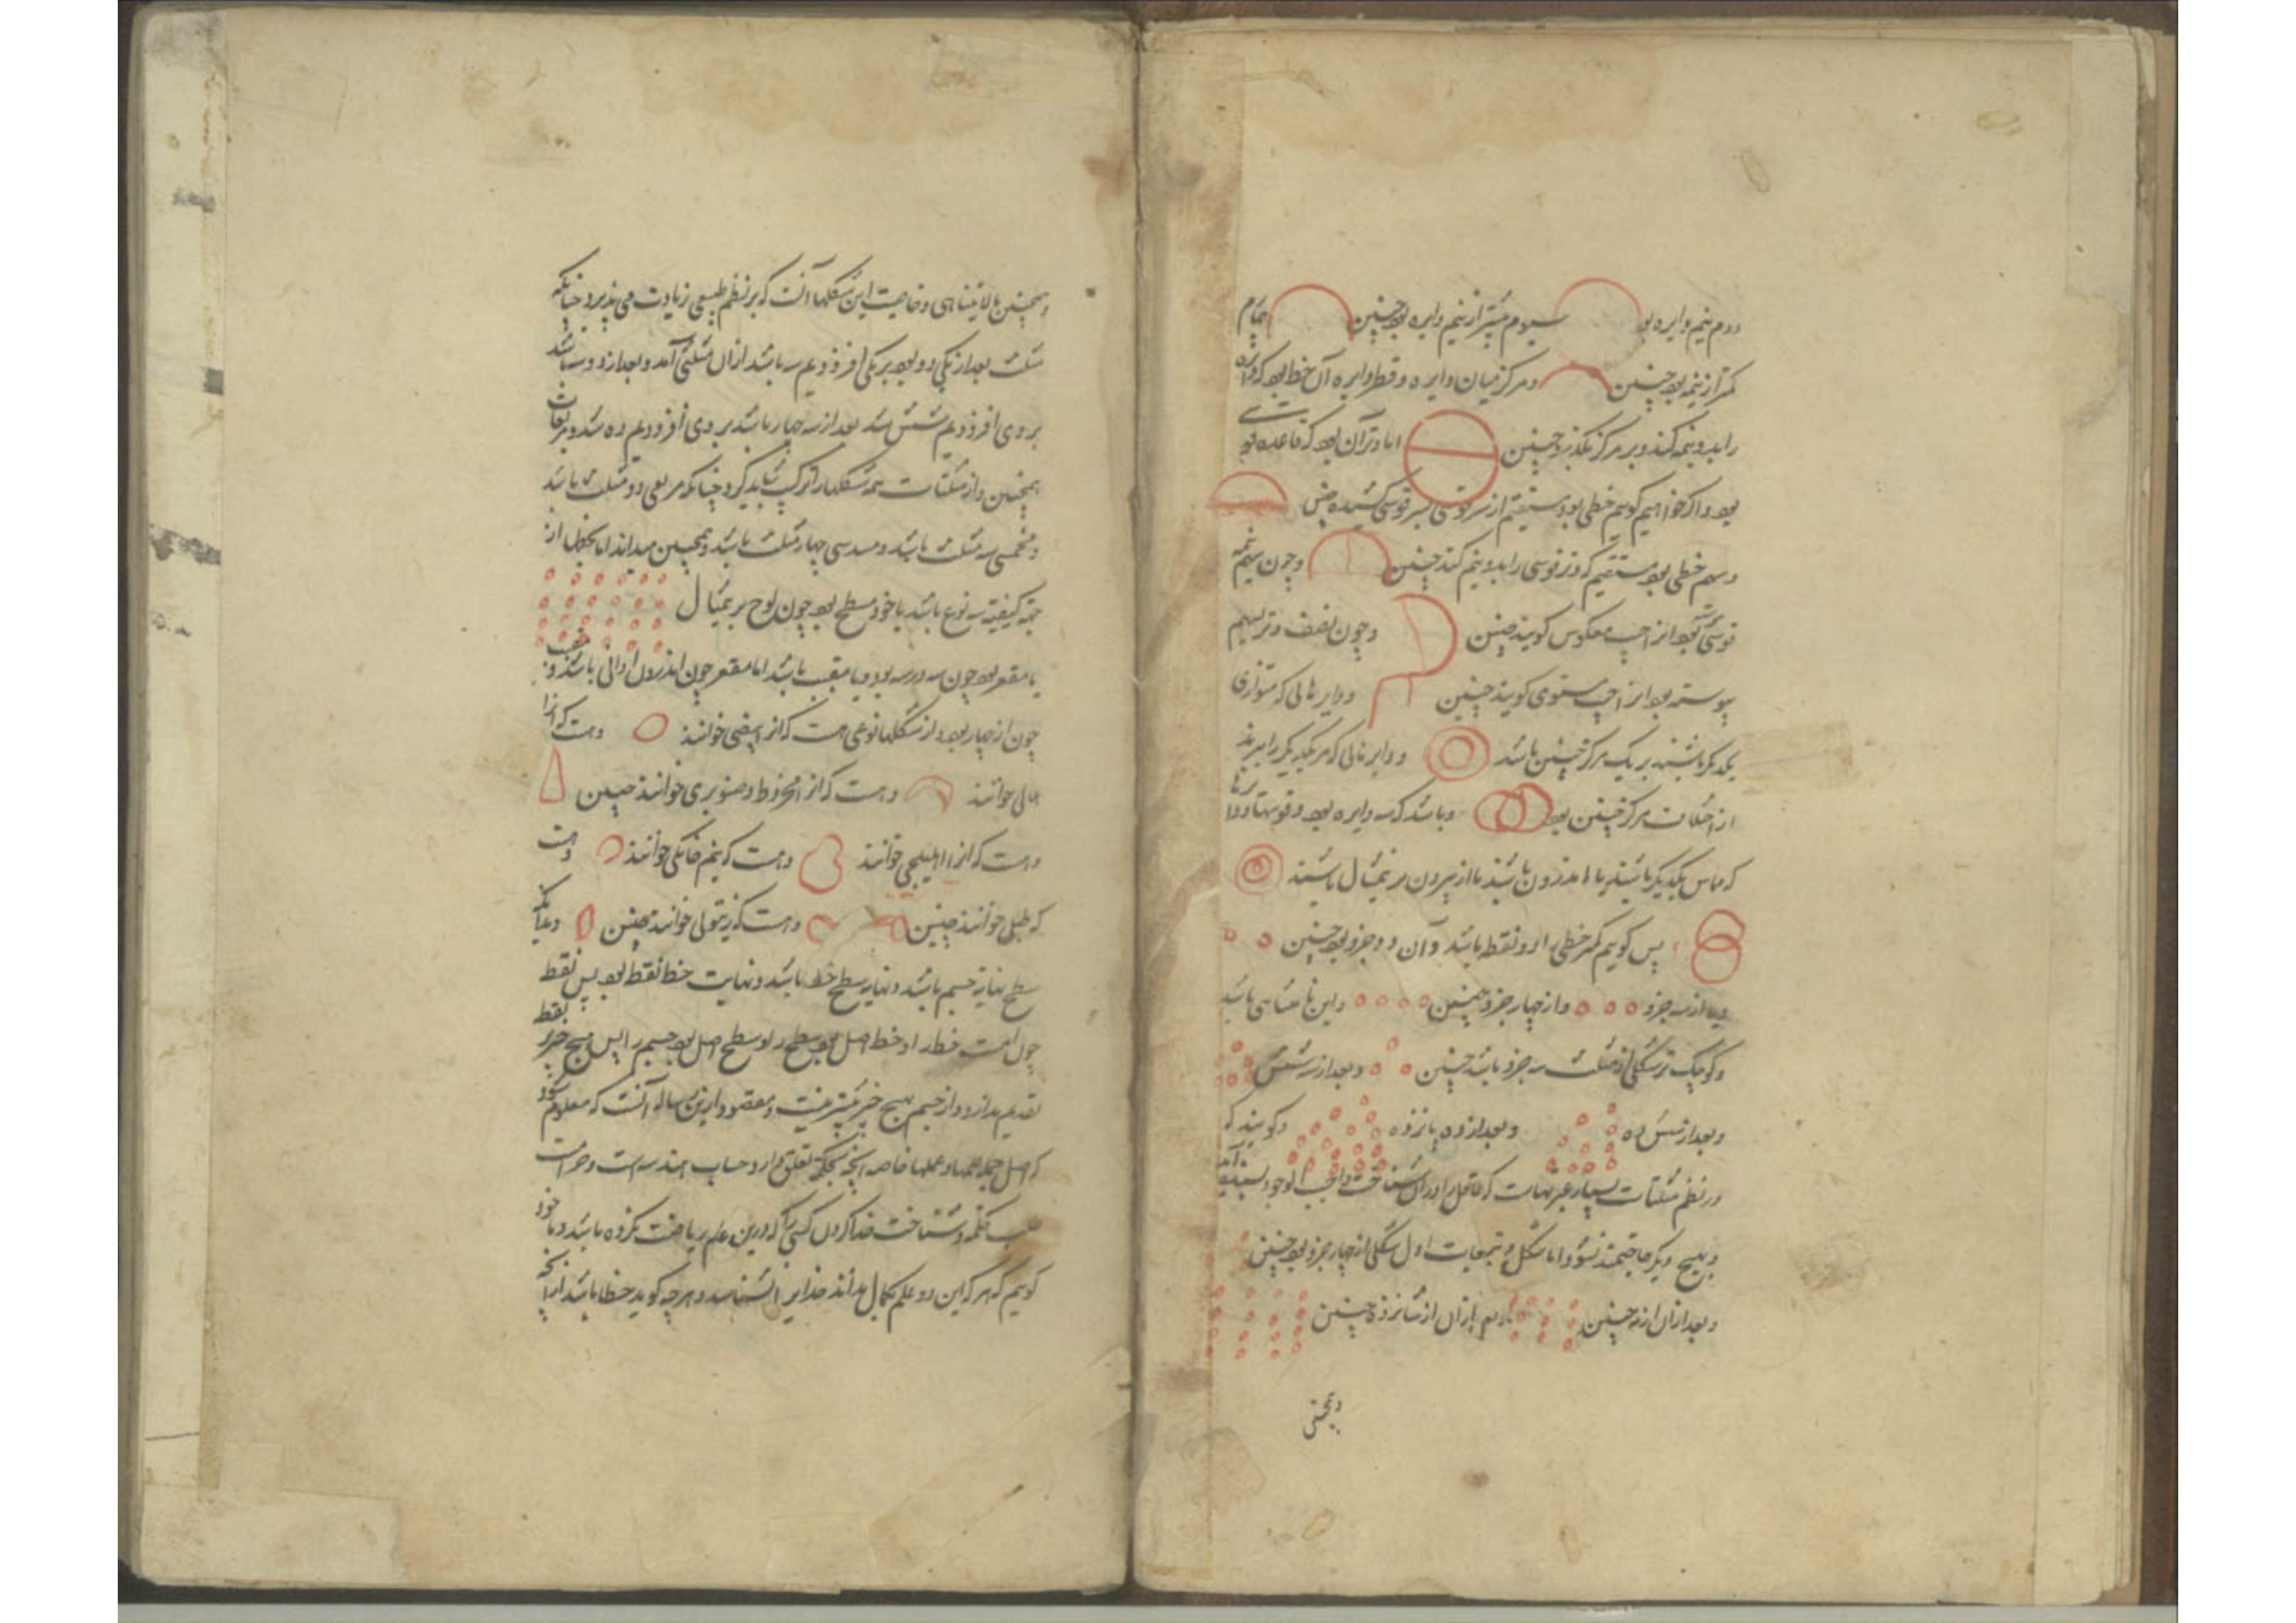 دوم نیم دایره بو سیوم بیشتر از نیم دایره بود چنین چهارم
کمتر از نیمه بود چنین ومرکز میان دایره وقطر دایره آن خط بود که دایره
را بدو نیمه کند وبر مرکز بگذرد چنین اما وتر آن بود که قاعده
بود واکر خواهیم کوییم خطی بود مستقیم از سر قوسی بسر قوسی کشیده چنین
وسهم خطی بود مستقیم که وتر قوسی را بدو نیم کند چنین وچون سهم نیمه
قوسی بود انرا جیب معکوس کویند چنین وچون نصف وتر بسهم
پیوسته بود انرا جیب مستوی کویند چنین ودایرهائی که متوازی
یکدکر باشند بر یک مرکز چنین باشد ودایرهائی که مر یکدیکر را ببرند
از اختلاف مرکز چنین بود وباشد که سه دایره بود وقوسها
که مماس یکدیکر باشند یا از اندرون باشند یا از بیرون بر مثال باشند
پس کوییم کمتر خطی از دو نقطه باشد وآن دو جزو بود چنین
از سه جزو واز چهار جزو همچنین واین نامتناهی باشد
وکوچک تر شکلی از مثلث سه جزو باشد چنین وبعد از سه شش
وبعد از شش ده وبعد از ده پانزده وکویند که
در نظم مثلثات بسیار عبرتهاست که عاقل واجب الوجود
وبهیچ دیکر حاجتمند نشود اما شکل مربعات اول شکلی از چهار جزو بود چنین
وبعد از ان از نه چنین وبعد از ان از شانزده چنین
وهمچنین
وهمچنین بلا یتناهی وخاصیت این شکلها آنست که بر نظم طبیعی زیادت می پذیرد چنانکه
مثلث بعد از یکی دو بود بر یکی افزودیم سه باشد از ان مثلثی آمد وبعد از دو سه باشد
بر وی افزودیم شش شد بعد از سه چهار باشد بر وی افزودیم ده شد ومربعات
همچنین واز مثلثات همه شکلها را ترکیب شاید کرد چنانکه مربعی دو مثلث باشد
ومخمسی سه مثلث باشد ومسدسی چهار مثلث باشد وهمچنین میداند اما سطحها از
جهة کیفیة سه نوع باشد یا خود مسطح بود چون لوح بر مثال
یا مقعر بود چون یا مقبب باشد اما مقعر چون اندرون اوانی باشد ومقبب
چون از شکلها نوعی هست که انرا بیضی خوانند وهست که انرا
هلالی خوانند وهست که انرا مخروط وصنوبری خوانند چنین
وهست که انرا اهلیلجی خوانند وهست که نیم خانکی خوانند وهست
که طبلی خوانند چنین وهست که زیتونی خوانند چنین وبدانکه
سطح نهایة جسم باشد ونهایة سطح خط باشد ونهایت خط نقطه بود پس نقطه
چون اصل است خط را وخط اصل بود سطح را وسطح اصل بود جسم را پس هیچ چیز بر نقطه
تقدیم ندارد واز جسم هیچ چیز بیشتر نیست ومقصود ازین رساله آنست که معلوم شود
که اصل جمله علمها وعملها خاصه آنچه بحکمة تعلق دارد حساب وهندسه است وحرامست
طلب حکمة وشناخت خدا کردن کسی را که درین علم ریاضت نکرده باشد وما خود
کوییم که هر که این دو علم بکمال نداند خدایرا نشناسد وهرچه کوید خطا باشد از آنچه